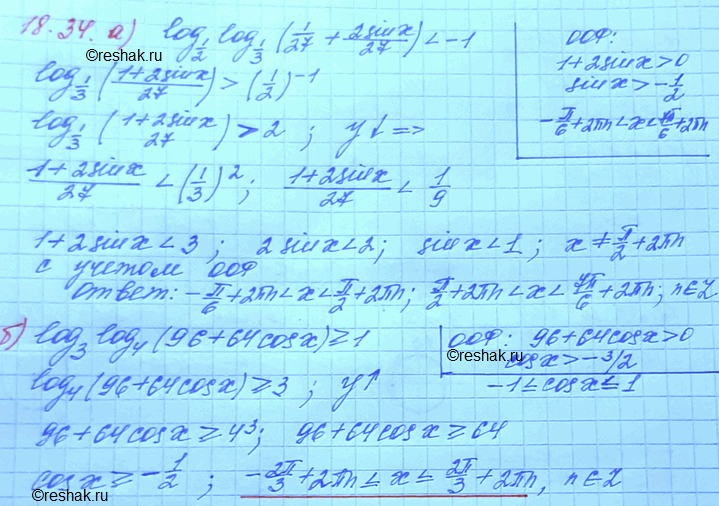 18.34. а) log_{1/2} log_{1/3} (1/27 + 2sinx/27) < -1
©reshak.ru
ООФ:
1+2sinx>0
sinx>-1/2
-π/6+2πn<x<7π/6+2πn
log_{1/3} (1+2sinx/27) > (1/2)^{-1}
log_{1/3} (1+2sinx/27) > 2 ; y↓ =>
1+2sinx/27 < (1/3)^2 ; 1+2sinx/27 < 1/9
1+2sinx<3 ; 2sinx<2; sinx<1 ; x≠π/2+2πn
с учетом ООФ
ответ: -π/6+2πn<x<π/2+2πn; π/2+2πn<x<7π/6+2πn; n∈Z
б) log_3 log_4 (96+64cosx)≥1
ООФ: 96+64cosx>0
cosx>-3/2
-1≤cosx≤1
©reshak.ru
log_4 (96+64cosx)≥3 ; y↑
96+64cosx≥4^3; 96+64cosx≥64
cosx≥-1/2 ; -2π/3+2πn≤x≤2π/3+2πn, n∈Z
©reshak.ru